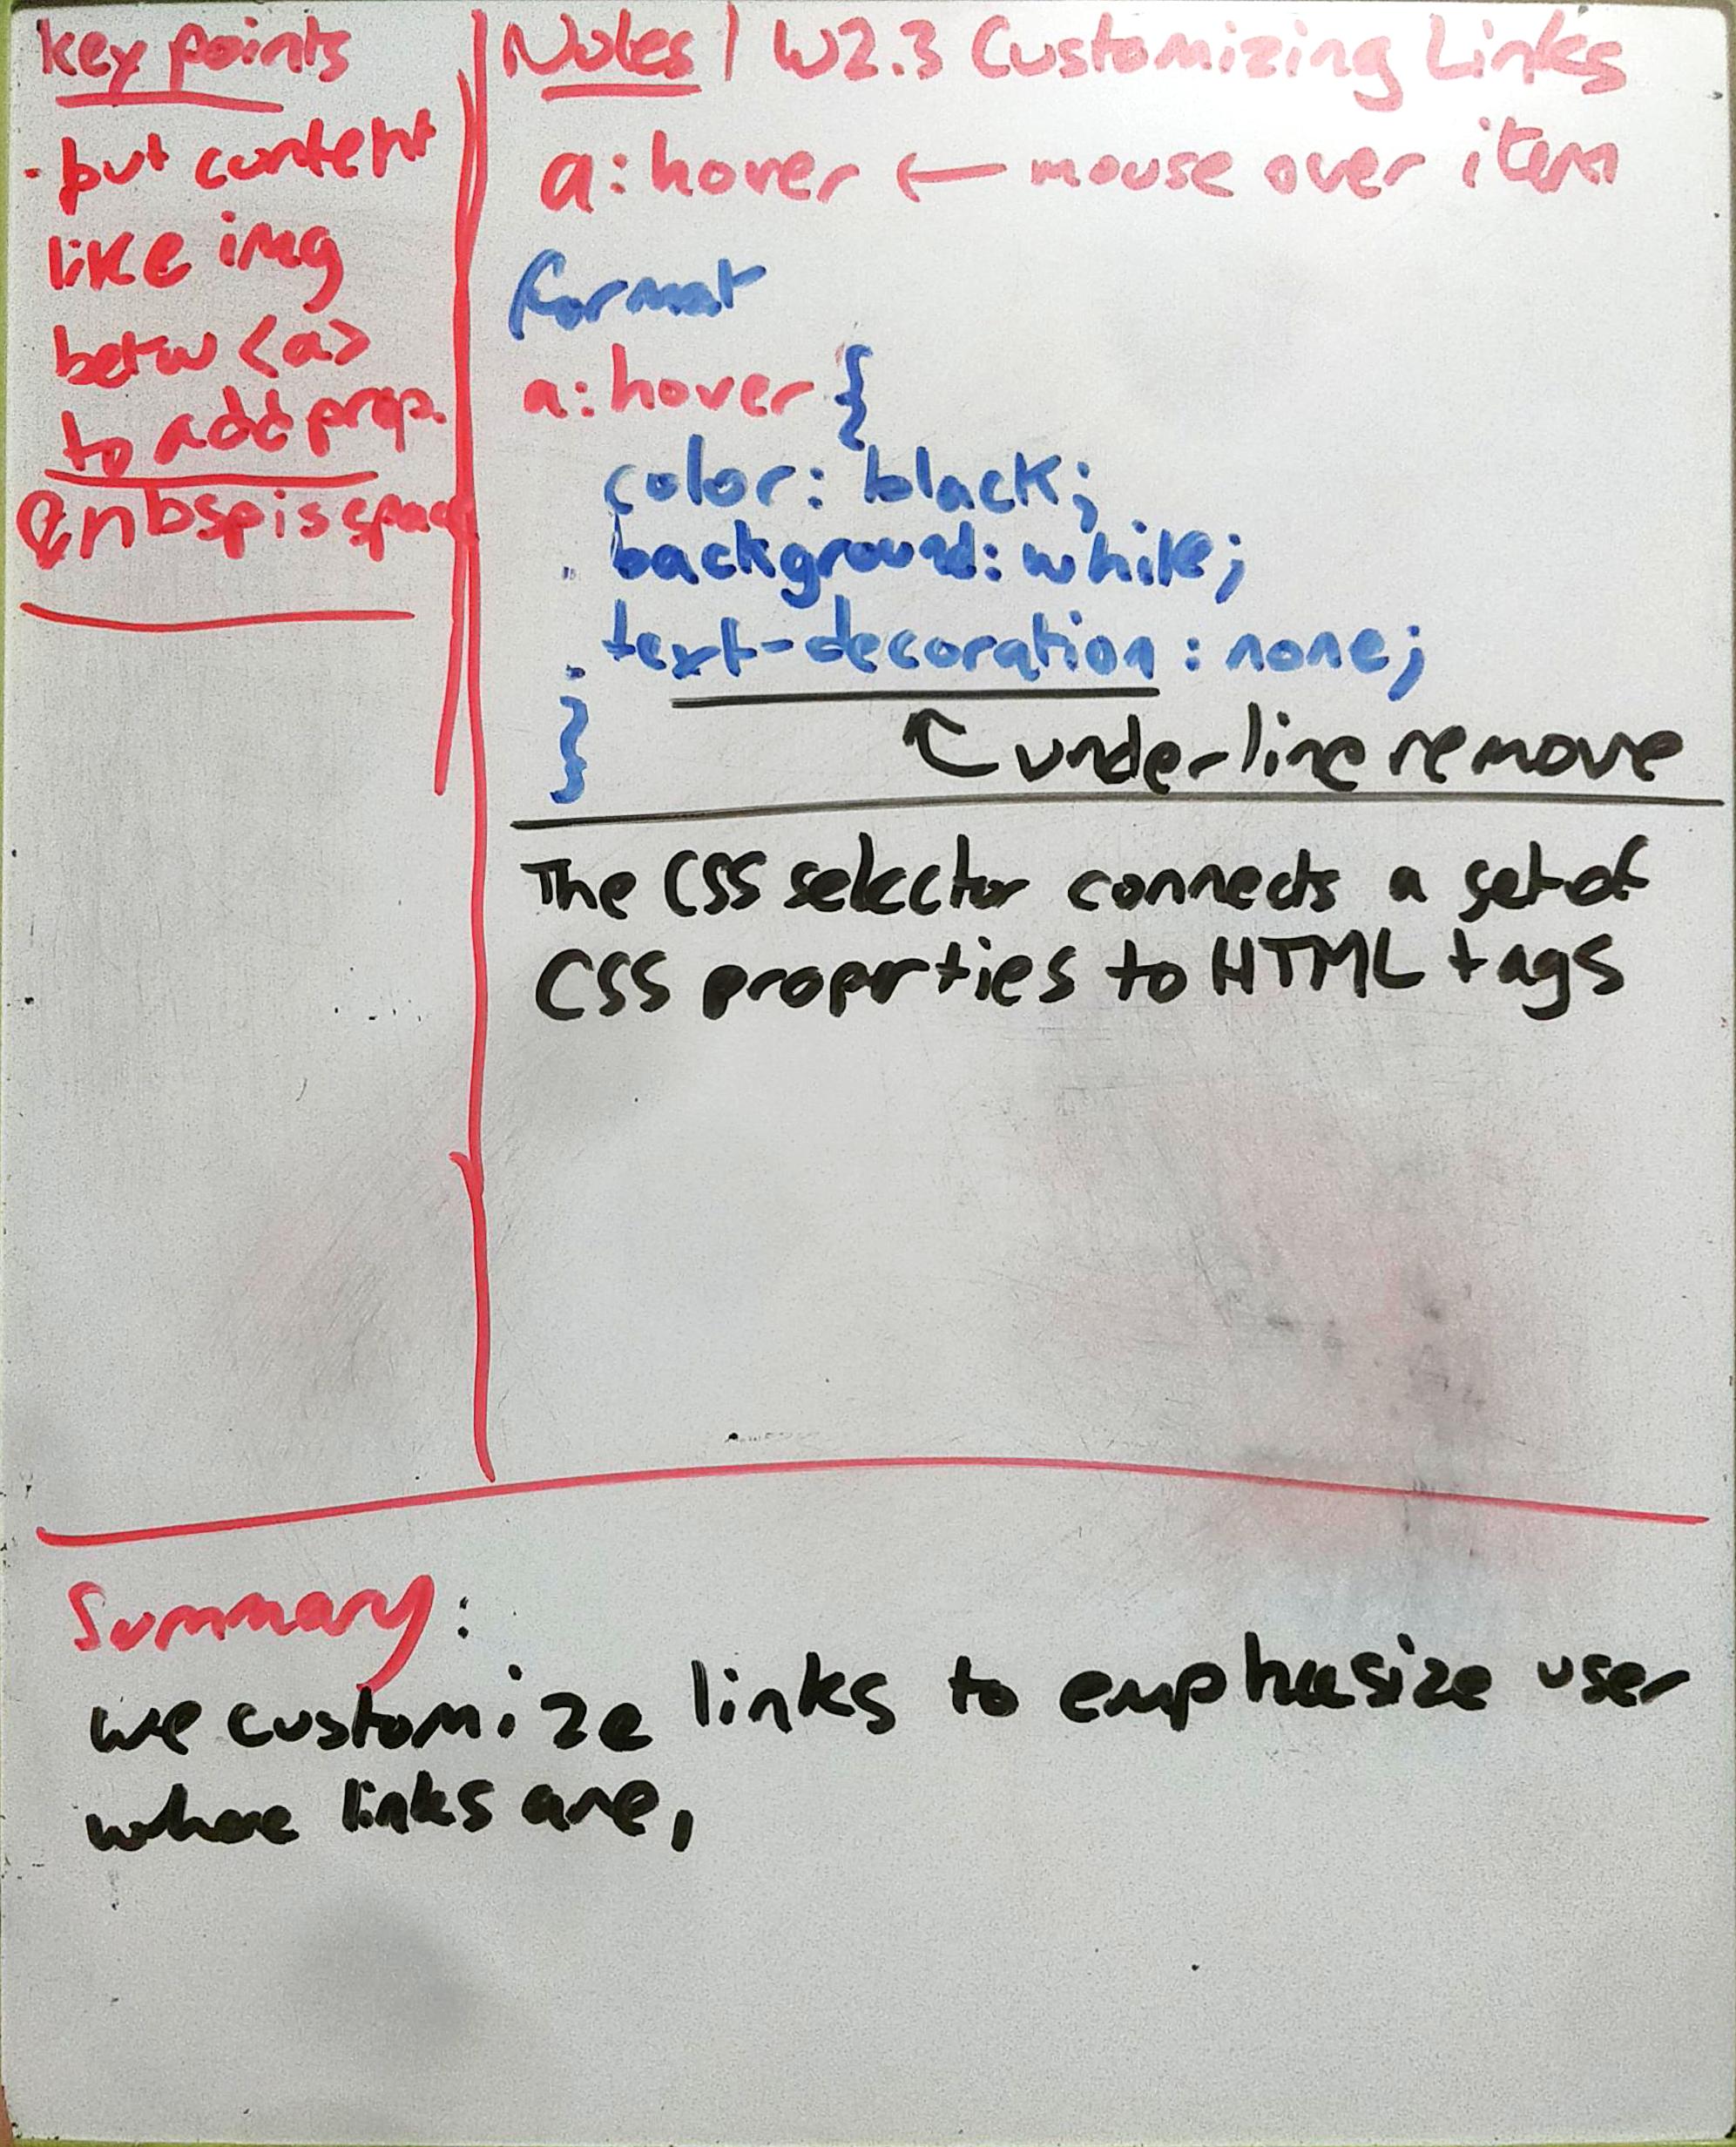 key points
- but content
like img
betw <a>
to add prop.
&nbsp is space
Notes | W2.3 Customizing Links
a:hover ← mouse over item
format
a:hover {
color: black;
. background: white;
. text-decoration: none;
}
underline remove
The CSS selector connects a set of
CSS properties to HTML tags
Summary:
we customize links to emphasize user
where links are,